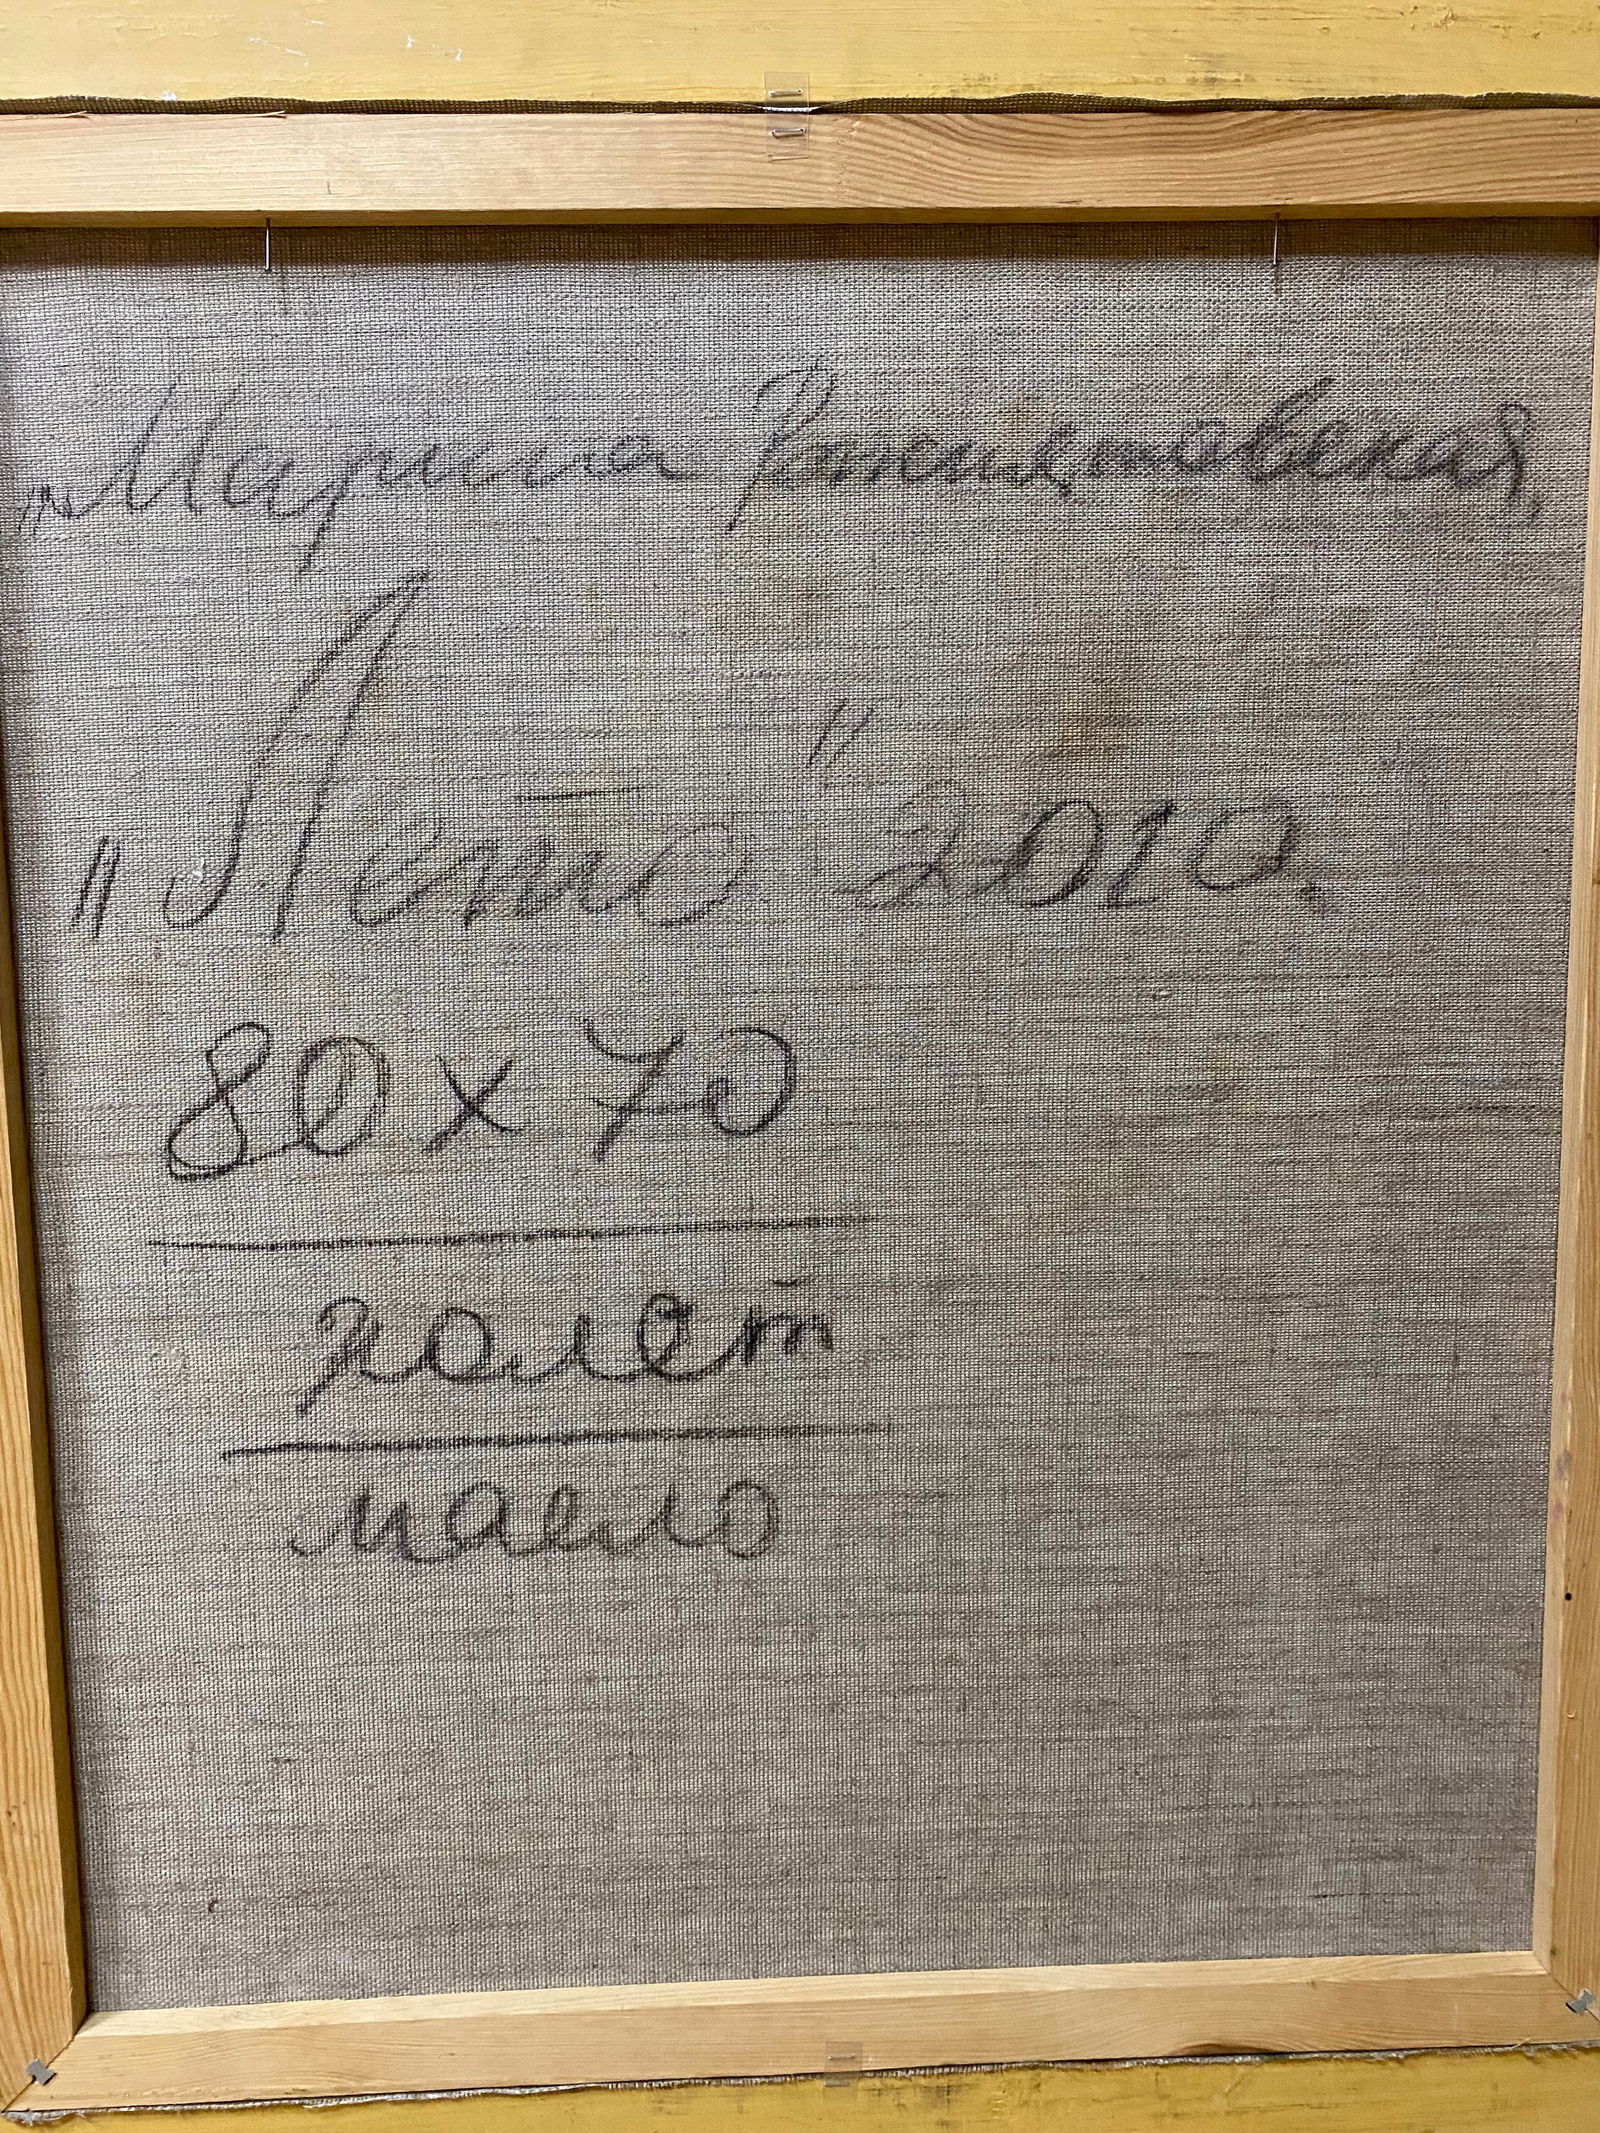 Марина
„Лето" 2010.
80 х 70
холст
масло